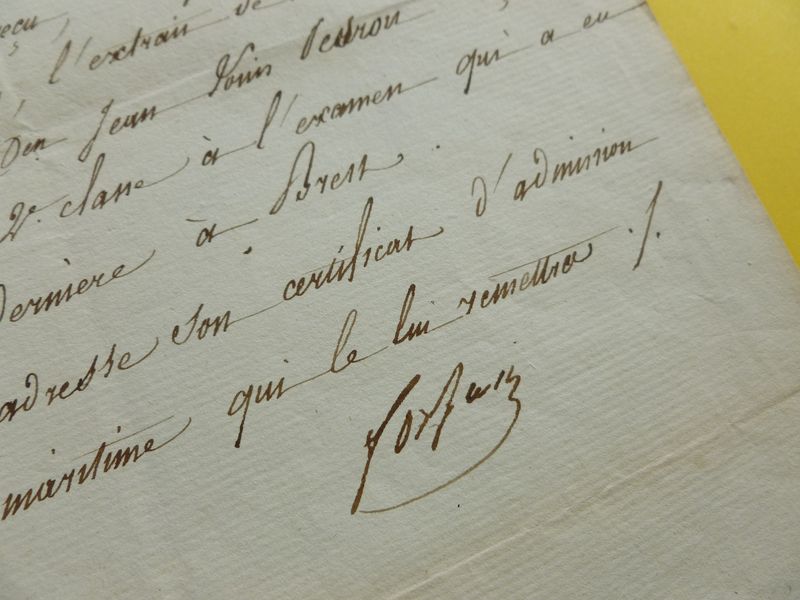 reçu,
l'extrait de
Den Jean Louis
2e. classe à l'examen qui a eu
dernière à Brest.
adresse son certificat d'admission
maritime qui le lui remettra ./.
Forfait